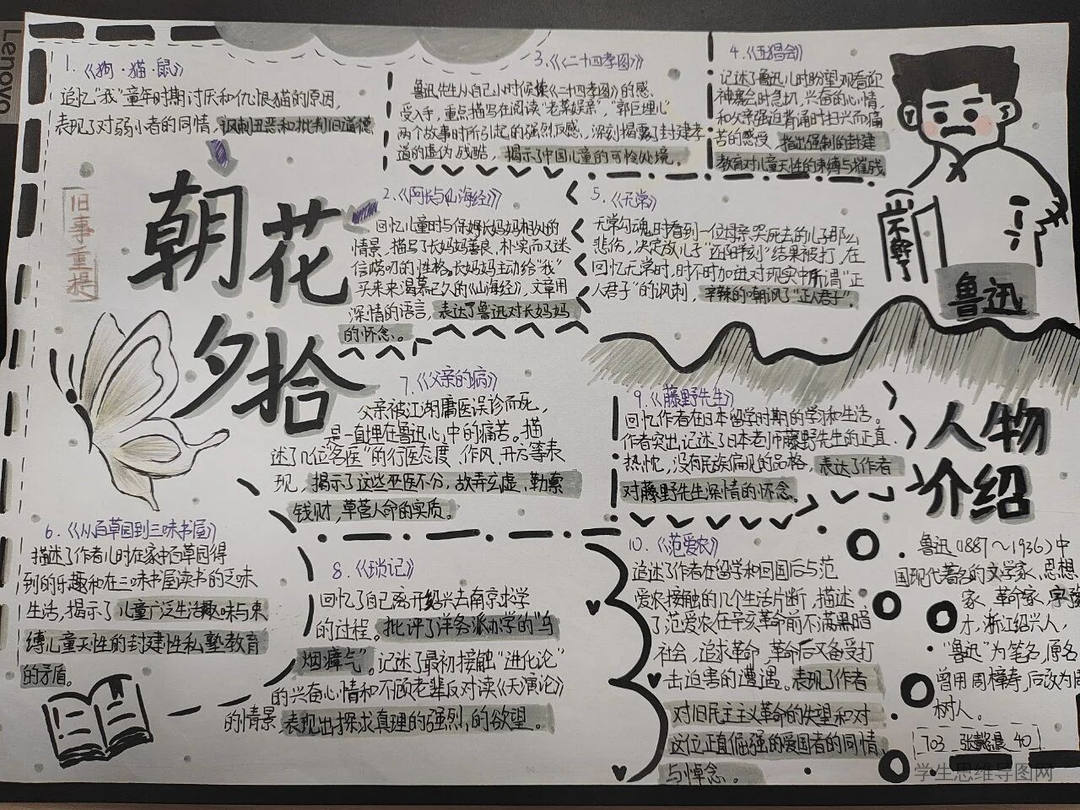 Lenovo
1.《狗·猫·鼠》
追忆"我"童年时期讨厌和仇恨猫的原因,
表现了对弱小者的同情,讽刺丑恶和批判旧道德
旧事重提
朝花
夕拾
2.《阿长与山海经》
回忆儿童时与保姆长妈妈相处的
情景,描写了长妈妈善良、朴实而又迷
信唠叨的性格,长妈妈主动给"我"
买来渴慕已久的《山海经》,文章用
深情的语言,表达了鲁迅对长妈妈
的怀念。
3.《二十四孝图》
鲁迅先生从自己小时候《二十四孝图》的感
受入手,重点描写在阅读"老莱娱亲","郭巨埋儿"
两个故事时所引起的强烈反感,深刻揭露了封建孝
道的虚伪残酷,揭示了中国儿童的可怜处境。
4.《五猖会》
记述了鲁迅儿时盼望观看迎
神赛会时急切,兴奋的心情,
和父亲强迫背诵时扫兴而痛
苦的感受,指出强制的封建
教育对儿童天性的束缚与摧残
5.《无常》
无常勾魂时看到一位母亲哭死去的儿子那么
悲伤,决定放儿子"还阳半刻"结果被打,在
回忆无常时,时不时加进对现实中所谓"正
人君子"的讽刺,辛辣的嘲讽了"正人君子"
鲁迅
6.《从百草园到三味书屋》
描述了作者儿时在家中百草园得
到的乐趣和在三味书屋读书的乏味
生活,揭示了儿童广泛生活趣味与束
缚儿童天性的封建性私塾教育
的矛盾。
7.《父亲的病》
父亲被江湖庸医误诊而死,
是一直埋在鲁迅心中的痛苦。描
述了几位"名医"的行医态度、作风、开方等表
现,揭示了这些巫医不分,故弄玄虚,勒索
钱财,草菅人命的实质。
8.《琐记》
回忆了自己离开绍兴去南京求学
的过程。批评了洋务派办学的"乌
烟瘴气"。记述了最初接触"进化论"
的兴奋心情和不顾老辈反对读《天演论》
的情景,表现出探求真理的强烈的欲望。
9.《藤野先生》
回忆作者在日本留学时期的学习和生活。
作者突出记述了日本老师藤野先生的正直
热忱,没有民族偏见的品格,表达了作者
对藤野先生深情的怀念。
10.《范爱农》
追述了作者在留学和回国后与范
爱农接触的几个生活片断,描述
了范爱农在辛亥革命前不满黑暗
社会,追求革命,革命后又备受打
击迫害的遭遇。表现了作者
对旧民主主义革命的失望和对
这位正直倔强的爱国者的同情
与悼念。
人物
介绍
鲁迅(1881~1936)中
国现代著名的文学家、思想
家、革命家,字豫
才,浙江绍兴人,
"鲁迅"为笔名,原名
曾用周樟寿,后改为周
树人。
703 40
学生思维导图网